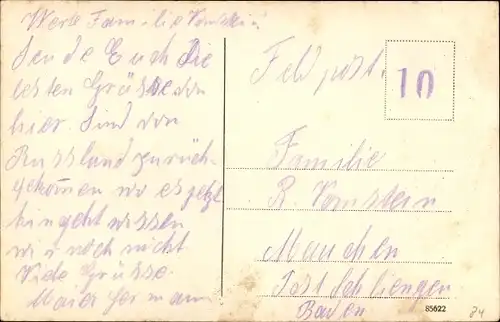 Werte Familie Vomstein!
Sende Euch Die
besten Grüsse von
hier. Sind von
Russland zurück-
gekommen wo es jetzt
hingeht wissen
wir noch nicht
Viele Grüsse.
Maier Hermann
Feldpost.
10
Familie
R. Vomstein
Mauchen
Post Schliengen
Baden
85622
84